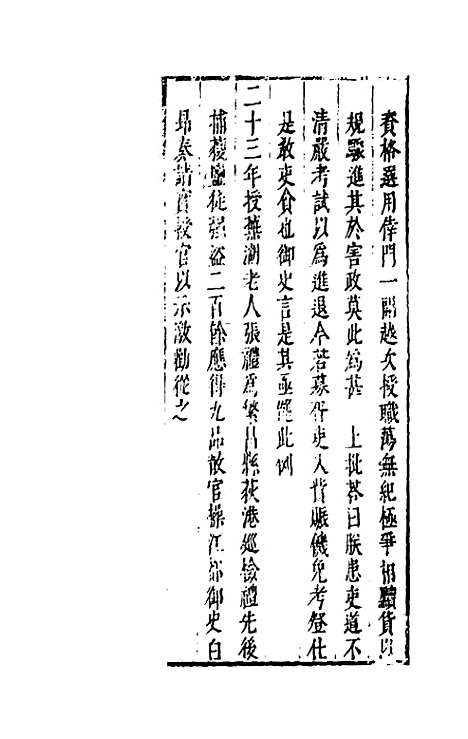 資格選用倖門一開越次授職蕩無紀極爭相黷貨以
規驟進其於害政莫此為甚　上批荅曰朕患吏道不
清嚴考試以為進退今若募聽吏人背賑饑免考登仕
是敢吏貪也御史言是其亟罷此例
二十三年授蕪湖老人張禮為繁昌縣荻港巡檢禮先後
捕獲鹽徒强盜二百餘應得九品散官操江都御史白
昂奏請實授官以示激勸從之